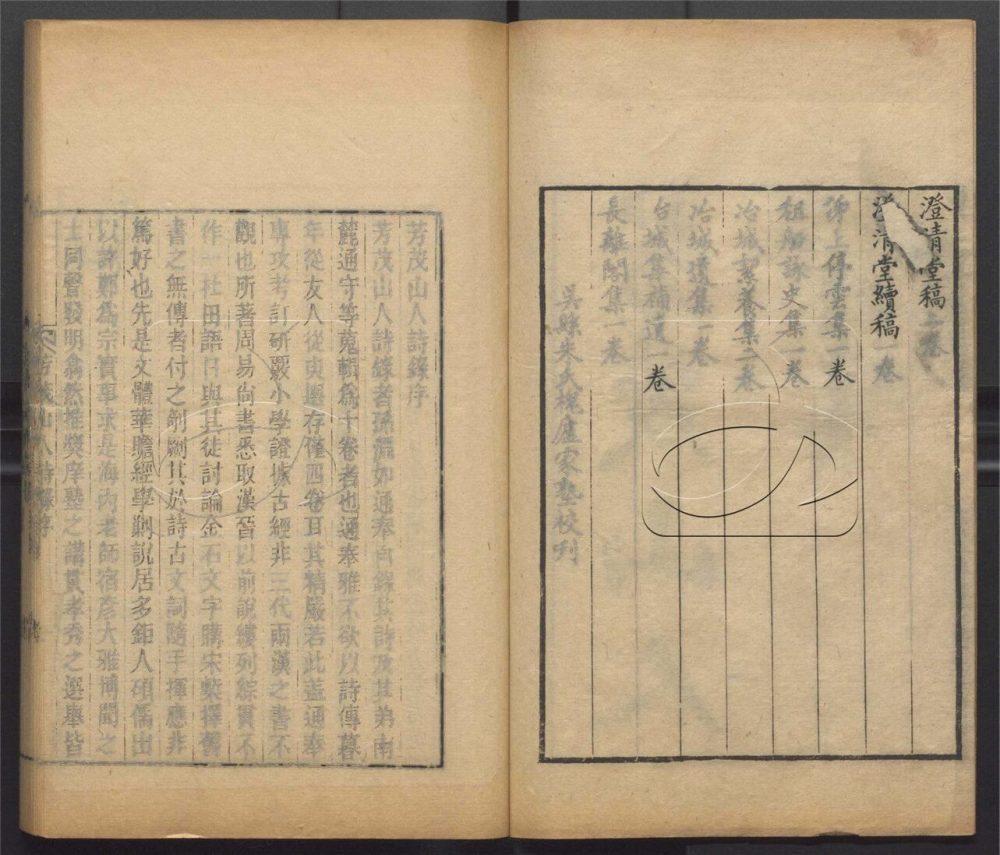 澄清堂稿二卷
澄清堂續稿一卷
濟上停雲集一卷
租船詠史集一卷
冶城絜養集二卷
冶城遺集一卷
冶城集補遺一卷
長離閣集一卷
吳縣朱氏槐廬家塾校刊
芳茂山人詩錄序
芳茂山人詩錄者孫淵如通奉自錄其詩及其弟南
麓通守等蒐輯爲十卷者也通奉雅不欲以詩傳暮
年從友人從臾遝存僅四卷耳其精嚴若此蓋通奉
專攻考訂研覈小學證據古經非三代兩漢之書不
觀也所著周易尙書悉取漢晉以前說縷列綜貫不
作一杜田語日與其徒討論金石文字購宋槧擇舊
書之無傳者付之剞劂其於詩古文詞隨手揮應非
篤好也先是文體華贍經學勦說居多鉅人碩儒出
以許鄭爲宗實事求是海內老師宿彥大雅博聞之
士同聲發明翕然推獎庠塾之講貫孝秀之選舉皆
芳茂山人詩錄序